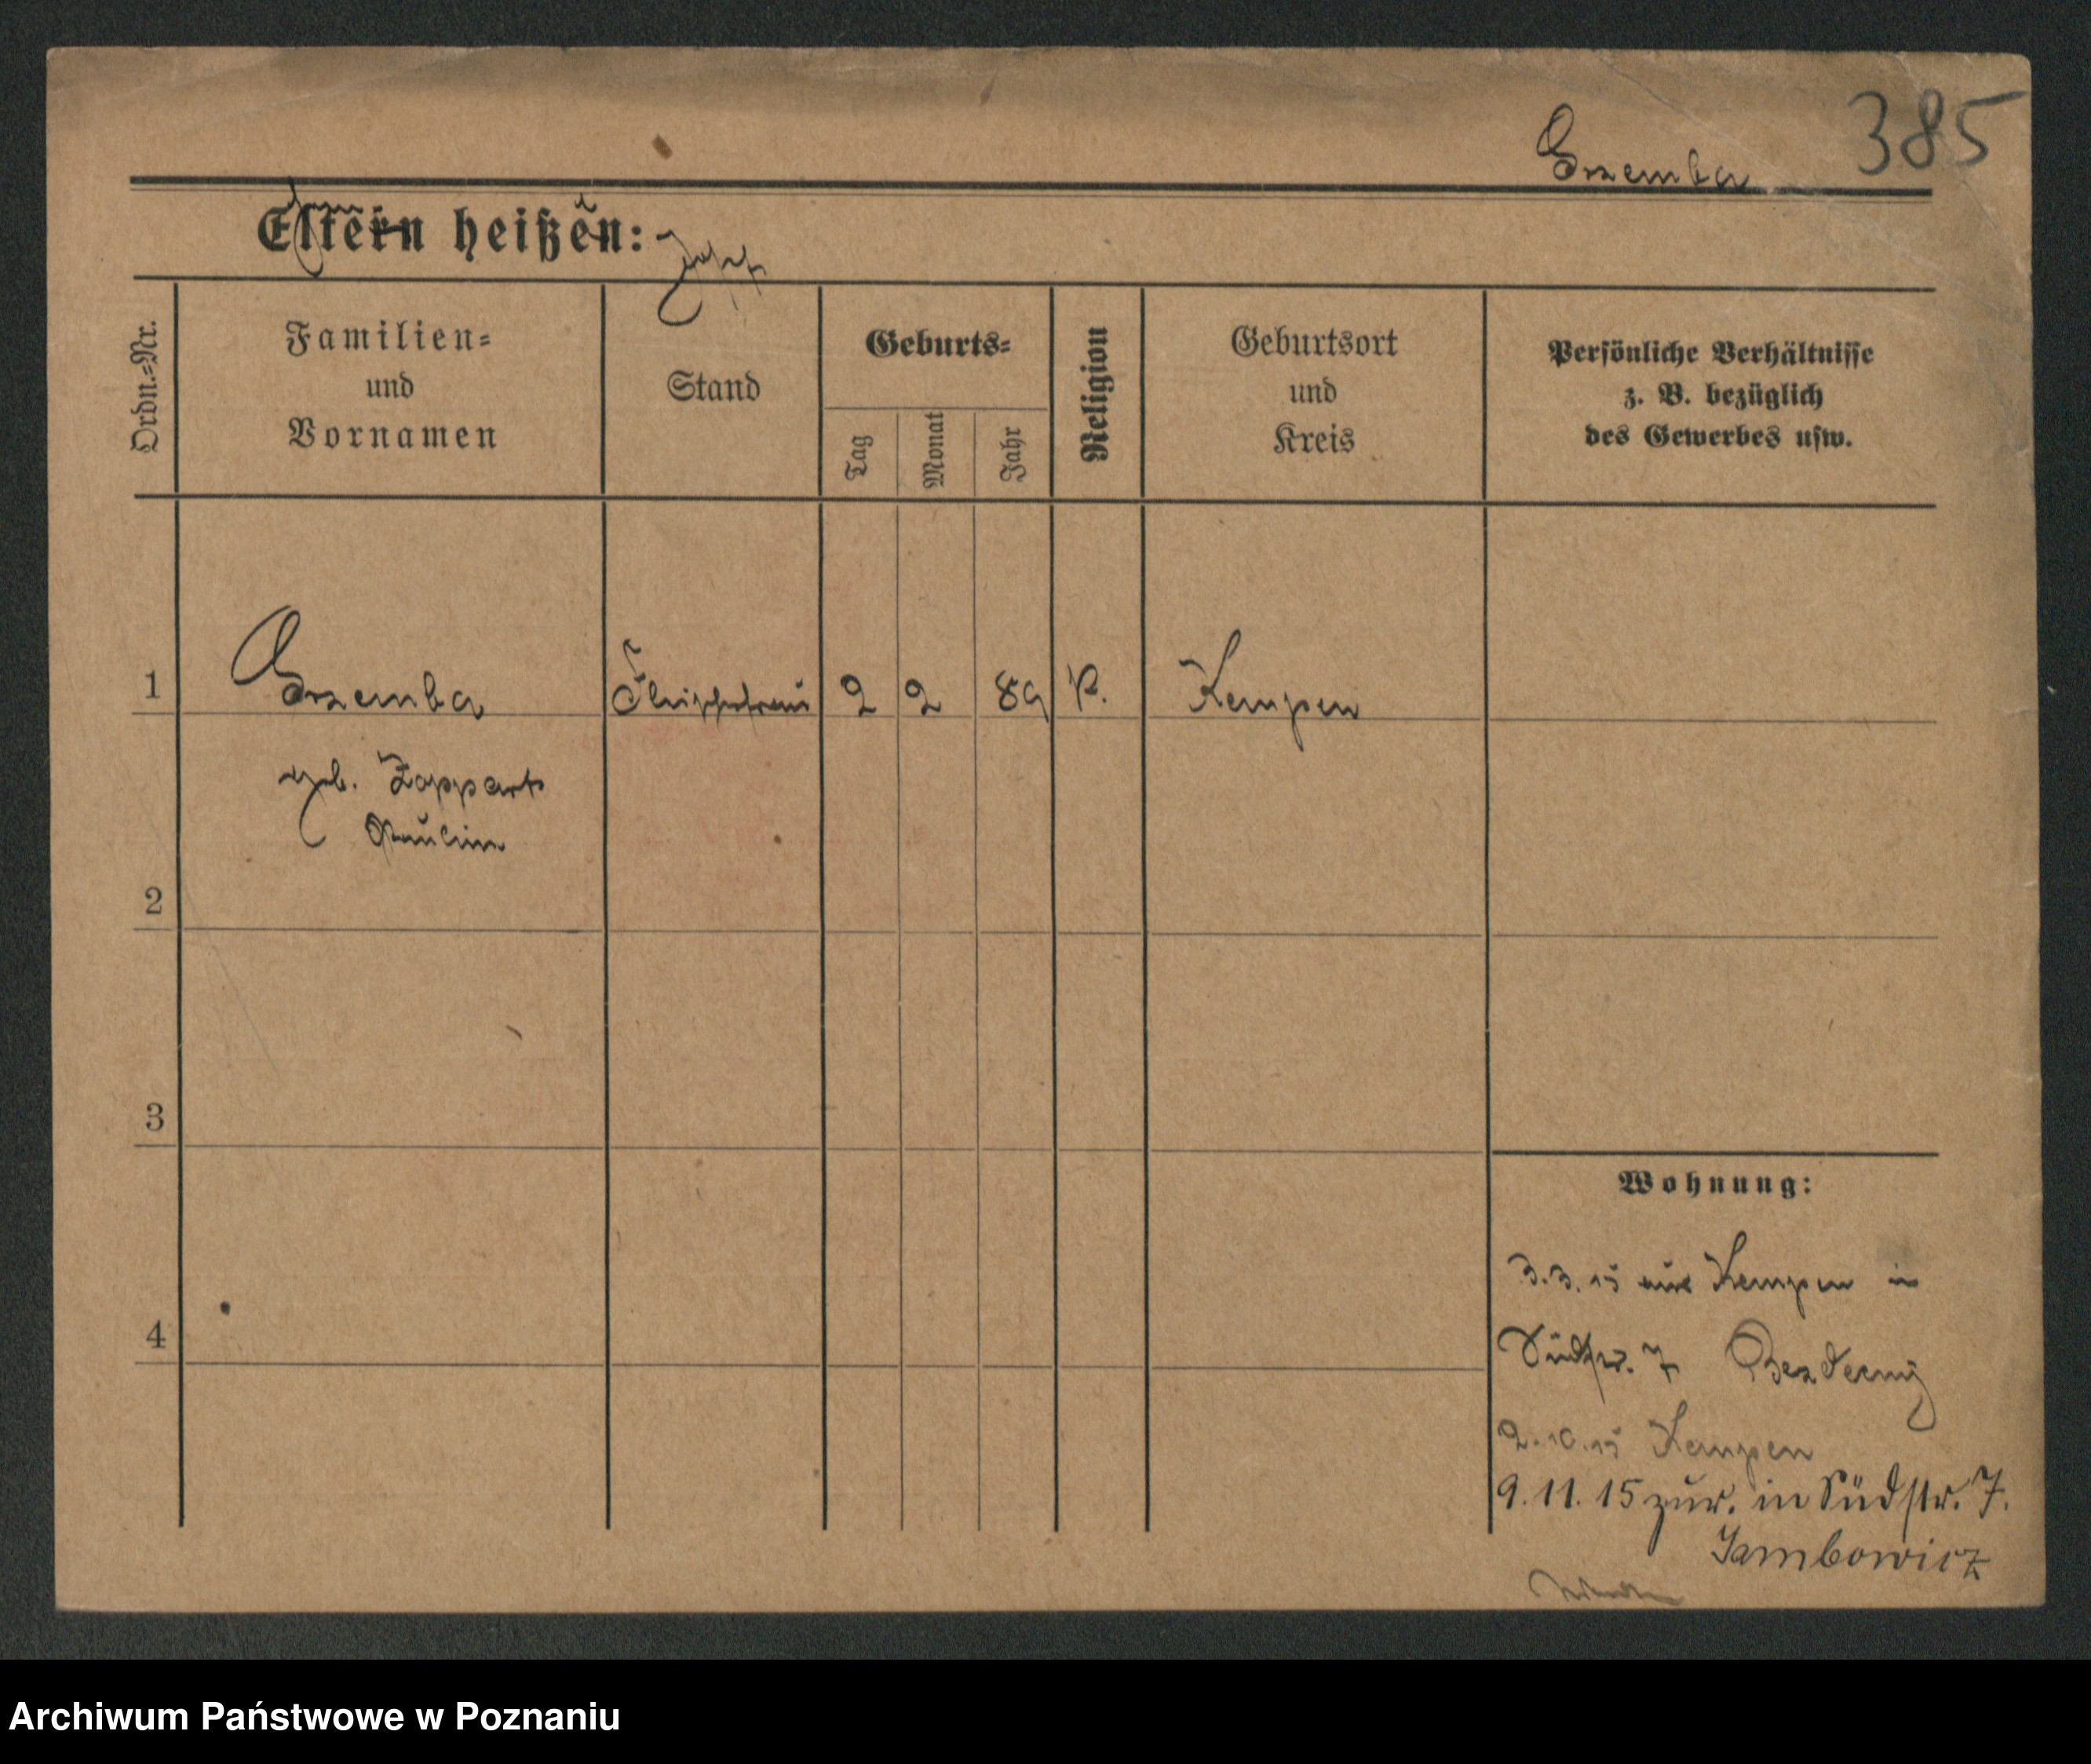 385
Grzemba
Eltern heißen: Josef
Ordn.=Nr.
Familien=
und
Vornamen
Stand
Geburts=
Tag
Monat
Jahr
Religion
Geburtsort
und
Kreis
Persönliche Verhältnisse
z. B. bezüglich
des Gewerbes usw.
1
Grzemba
Fleischerfrau
2
2
89
K.
Kempen
geb. Zoppart
Paulin
2
3
4
Wohnung:
3.3.15 aus Kempen in
Südstr. 7
2.10.15 Kempen
9.11.15 zur. in Südstr. 7.
Jambowicz
Archiwum Państwowe w Poznaniu